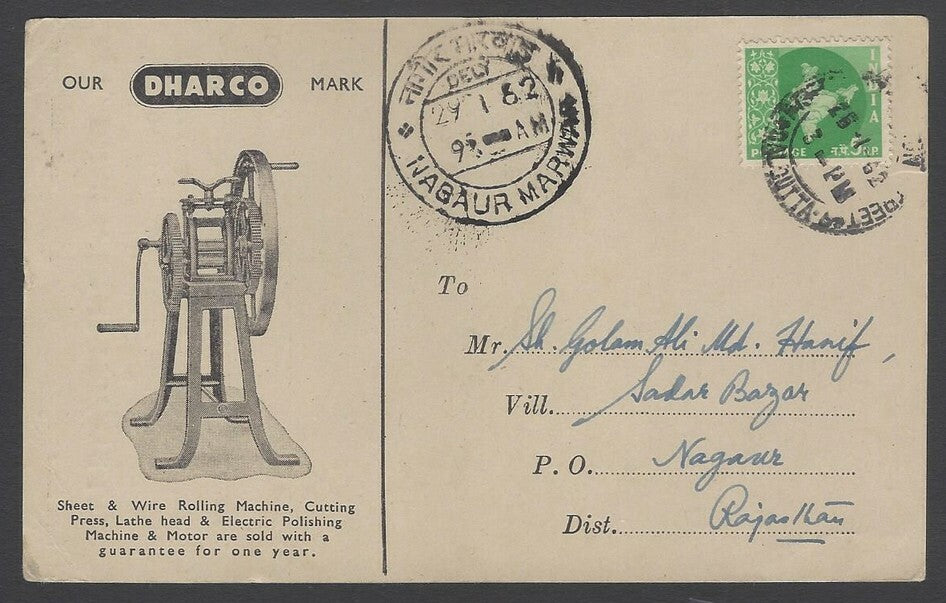 OUR DHARCO MARK
Sheet & Wire Rolling Machine, Cutting
Press, Lathe head & Electric Polishing
Machine & Motor are sold with a
guarantee for one year.
नागौर मारवाड़
DELY
29 1 62
AM
NAGAUR MARWAR
INDIA
POSTAGE न.पै. 5 N.P.
3 - PM
62
To
Mr. Sh. Golam Ali Md. Hanif,
Vill. Sadar Bazar
P. O. Nagaur
Dist. Rajasthan